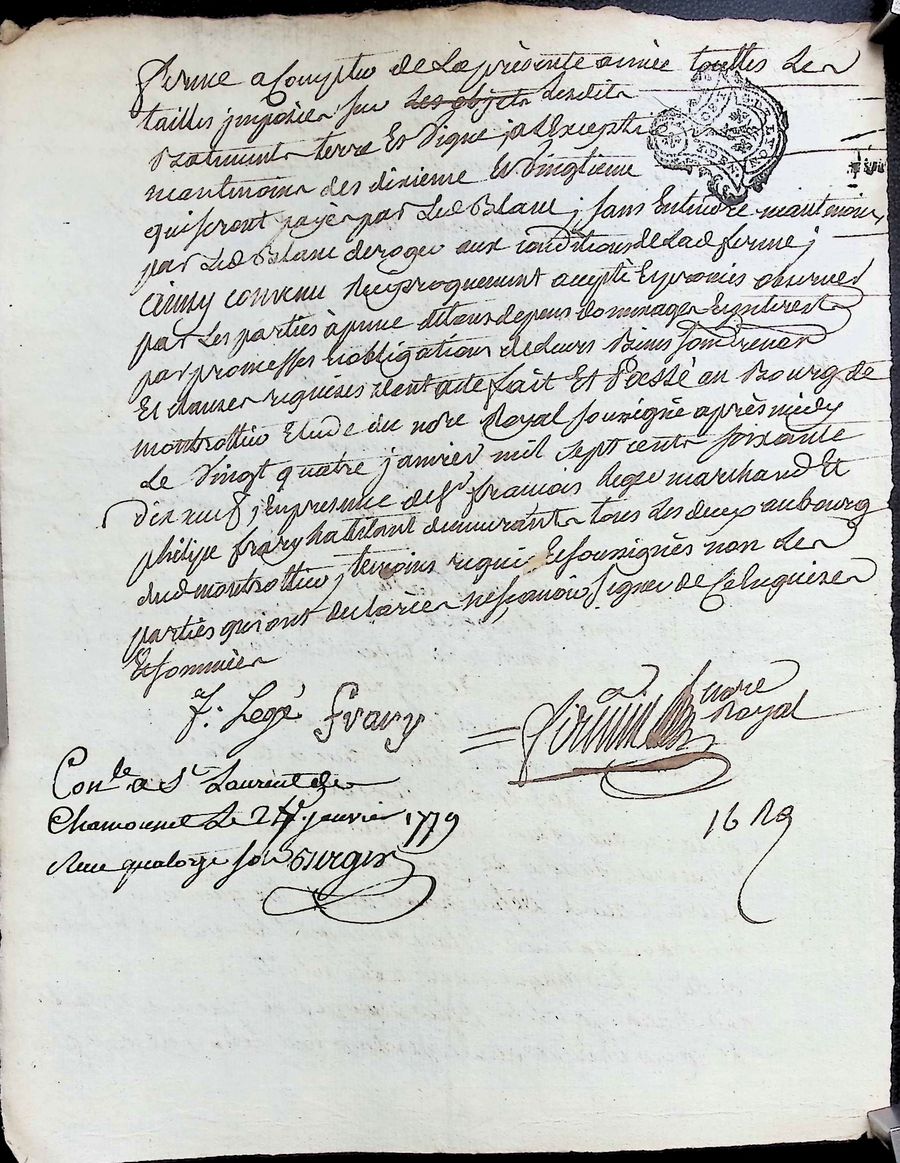 ferme a Compter de La présente année touttes Les
tailles imposées sur Les objets desdits
Batiments terre Et Vigne, a L'Exception
maintenoins des dixieme Et Vingtieme
qui seront payés par Led Blanc; sans Entendre maintenoins
par Led Blanc deroger aux conditions de Lad ferme;
ainsy convenu Reciproquement accepté Et promis observer
par Les parties à peine de tous depens dommages Et interest
par promesses obligations de Leurs Biens
Et clauses requises dont acte fait Et Passé au Bourg de
montrottier Etude du nore Royal soussigné après midy
Le Vingt quatre janvier mil sept cents soixante
Dix neuf, En presence de Sr francois Legé marchand Et
philipe frary habitant demeurants tous Les deux aubourg
dud montrottier, temoins requis Et soussignés non Les
parties qui ont declarées ne sçavoir signer de Ce Enquises
Et sommées
f. Legé frary
nore
Royal
Conlé a St Laurent de
Chamousset Le 24 janvier 1779
Reçu quatorze sols
16